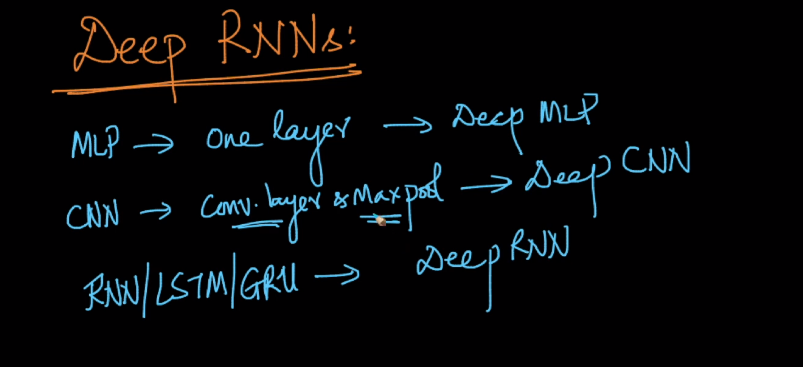 Deep RNNs:
MLP → one layer → Deep MLP
CNN → Conv. layer & Maxpool → Deep CNN
RNN/LSTM/GRU → Deep RNN